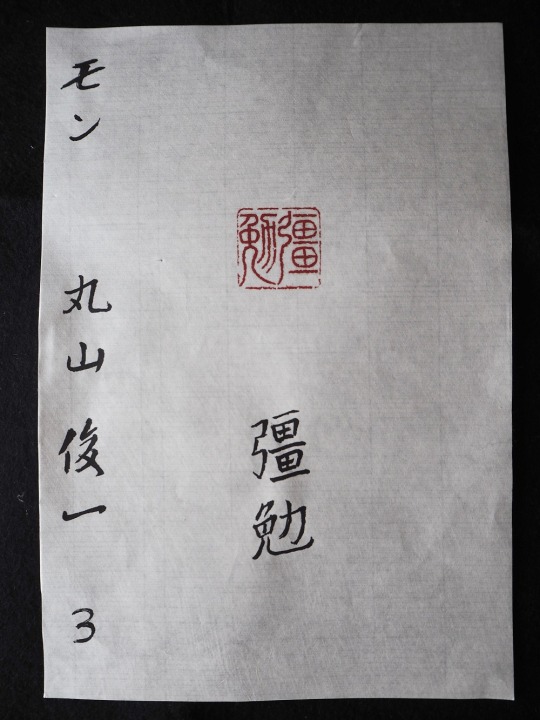 彊勉
彊勉
モン 丸山俊一 3